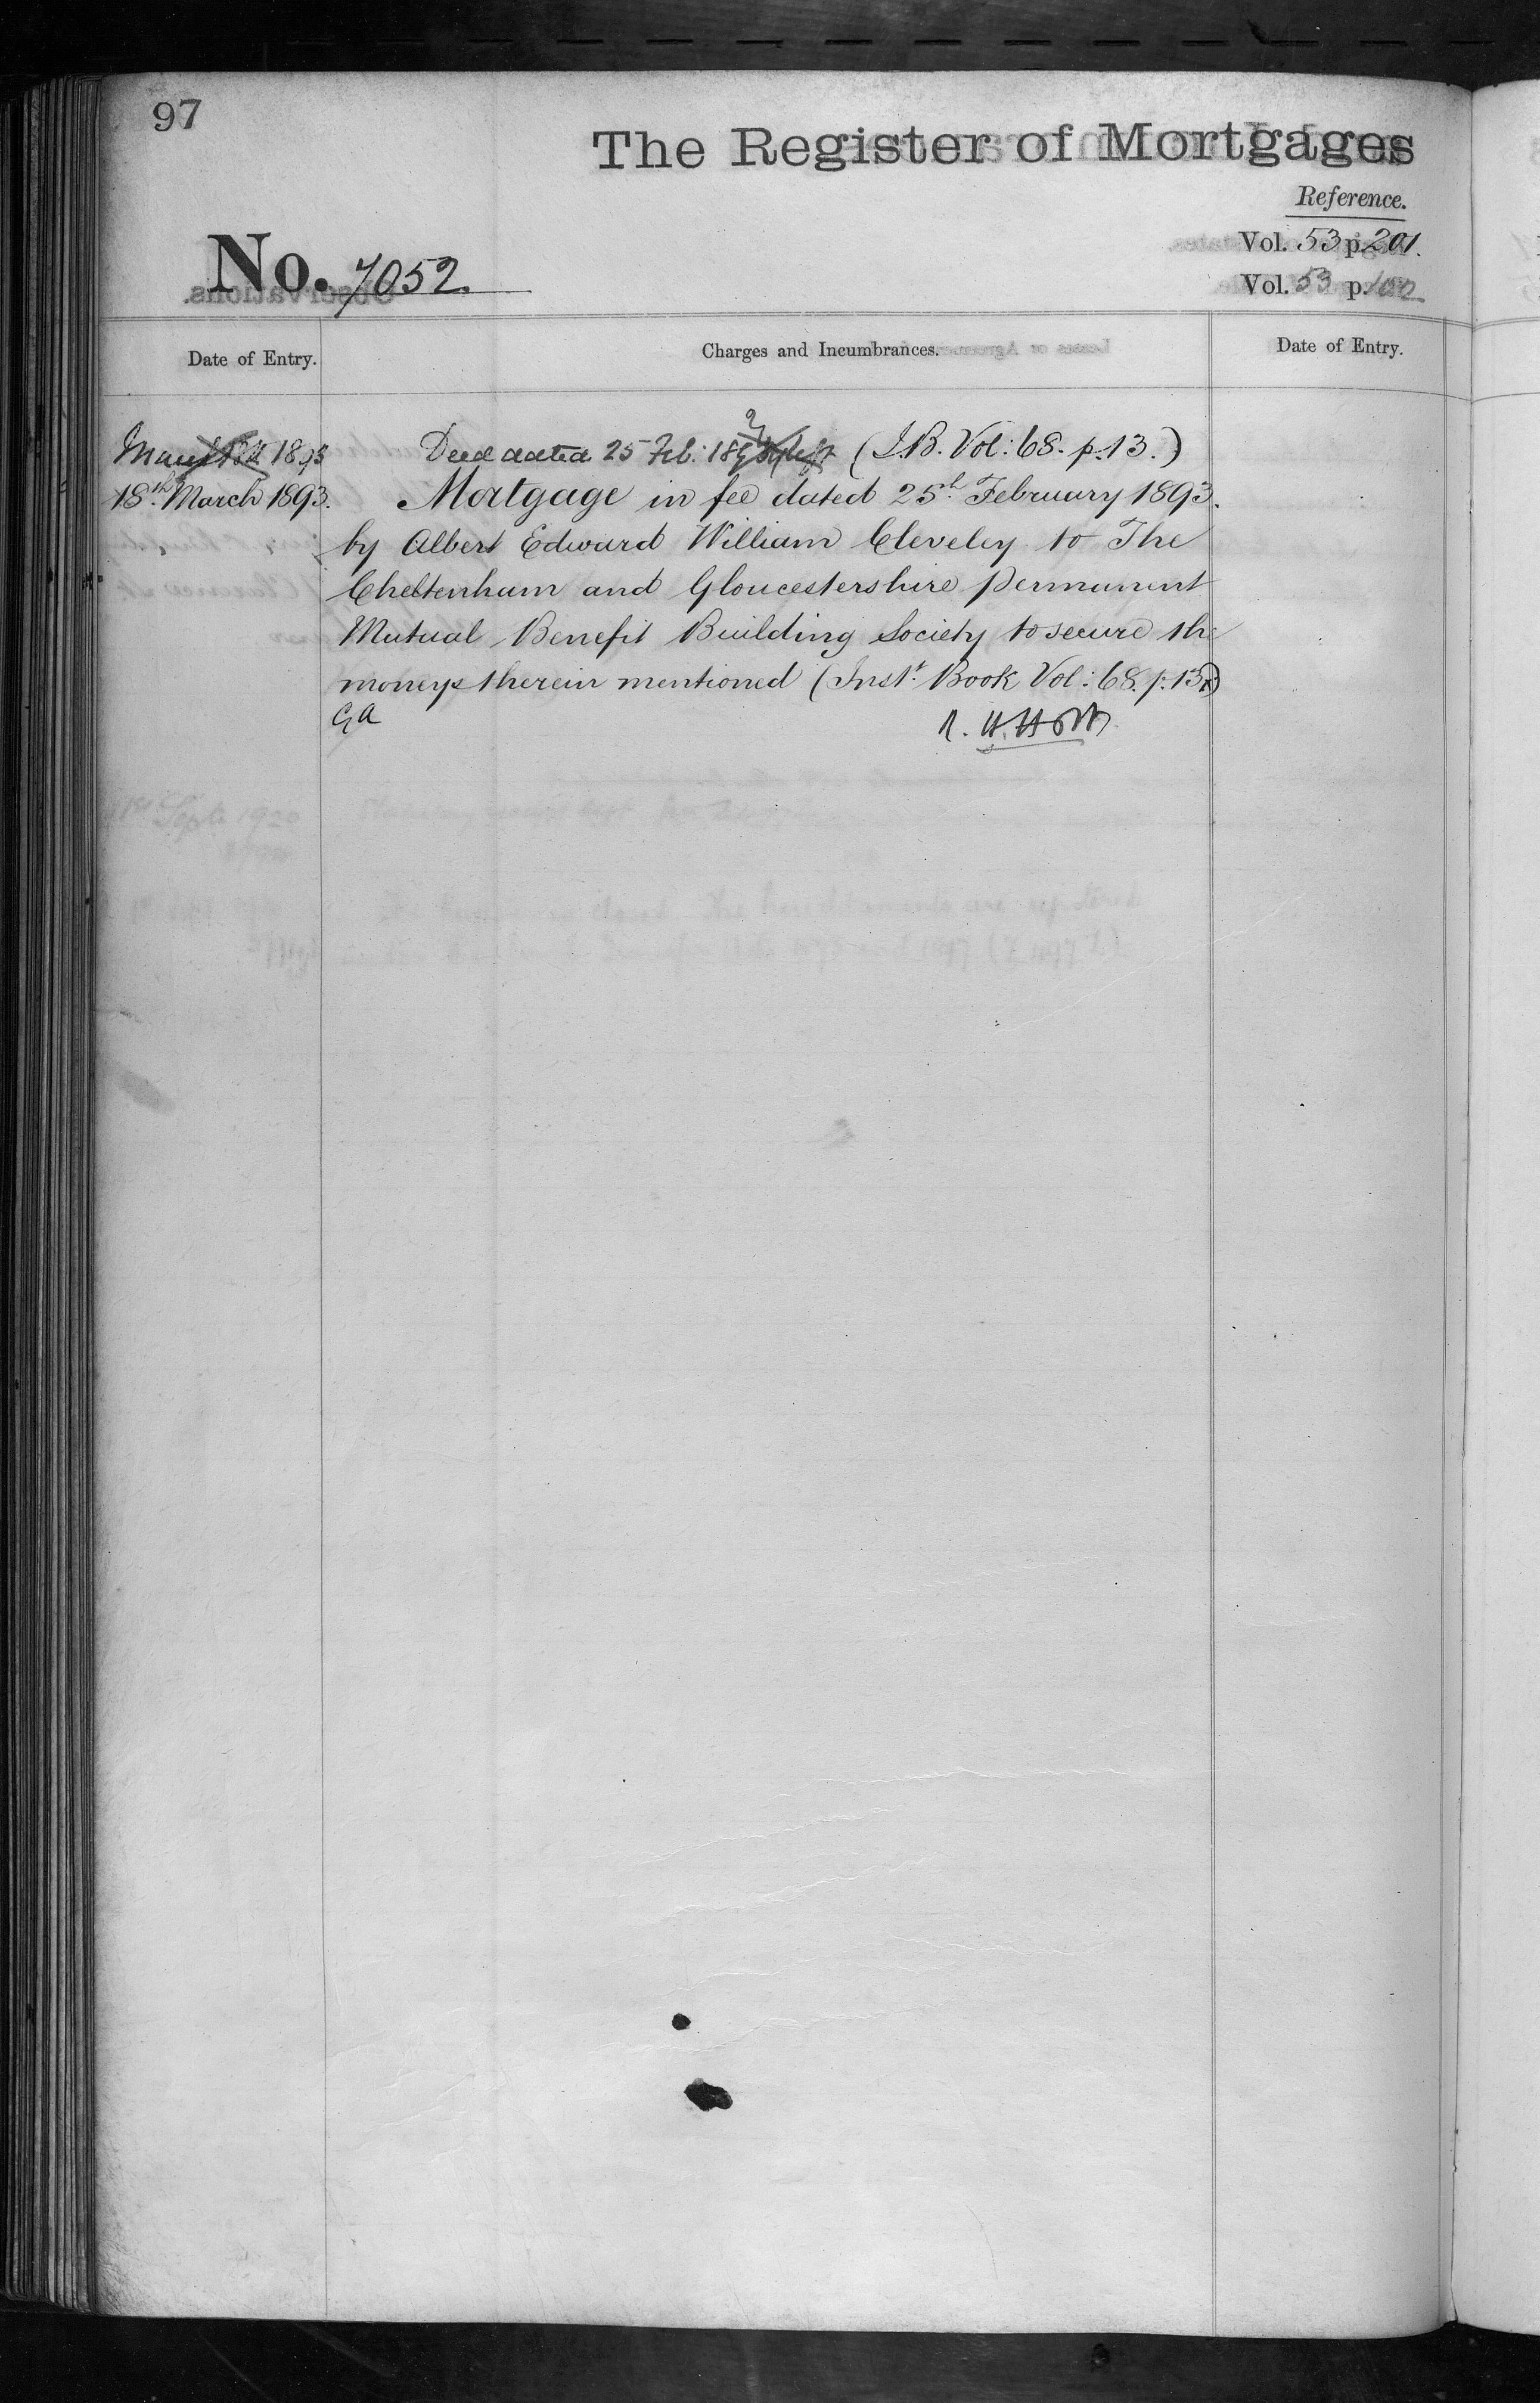 97
The Register of Mortgages
Reference.
Vol. 53 p. 201.
No. 7052.
Vol. 53 p. 102
Date of Entry.
Charges and Incumbrances.
Date of Entry.
March 18th 1893
Deed dated 25 Feb: 189 (I.B. Vol: 68. p. 13.)
18th March 1893.
Mortgage in fee dated 25th February 1893.
by Albert Edward William Cleveley to The
Cheltenham and Gloucestershire Permanent
Mutual Benefit Building Society to secure the
moneys therein mentioned (Inst. Book Vol: 68. p. 13)
GA